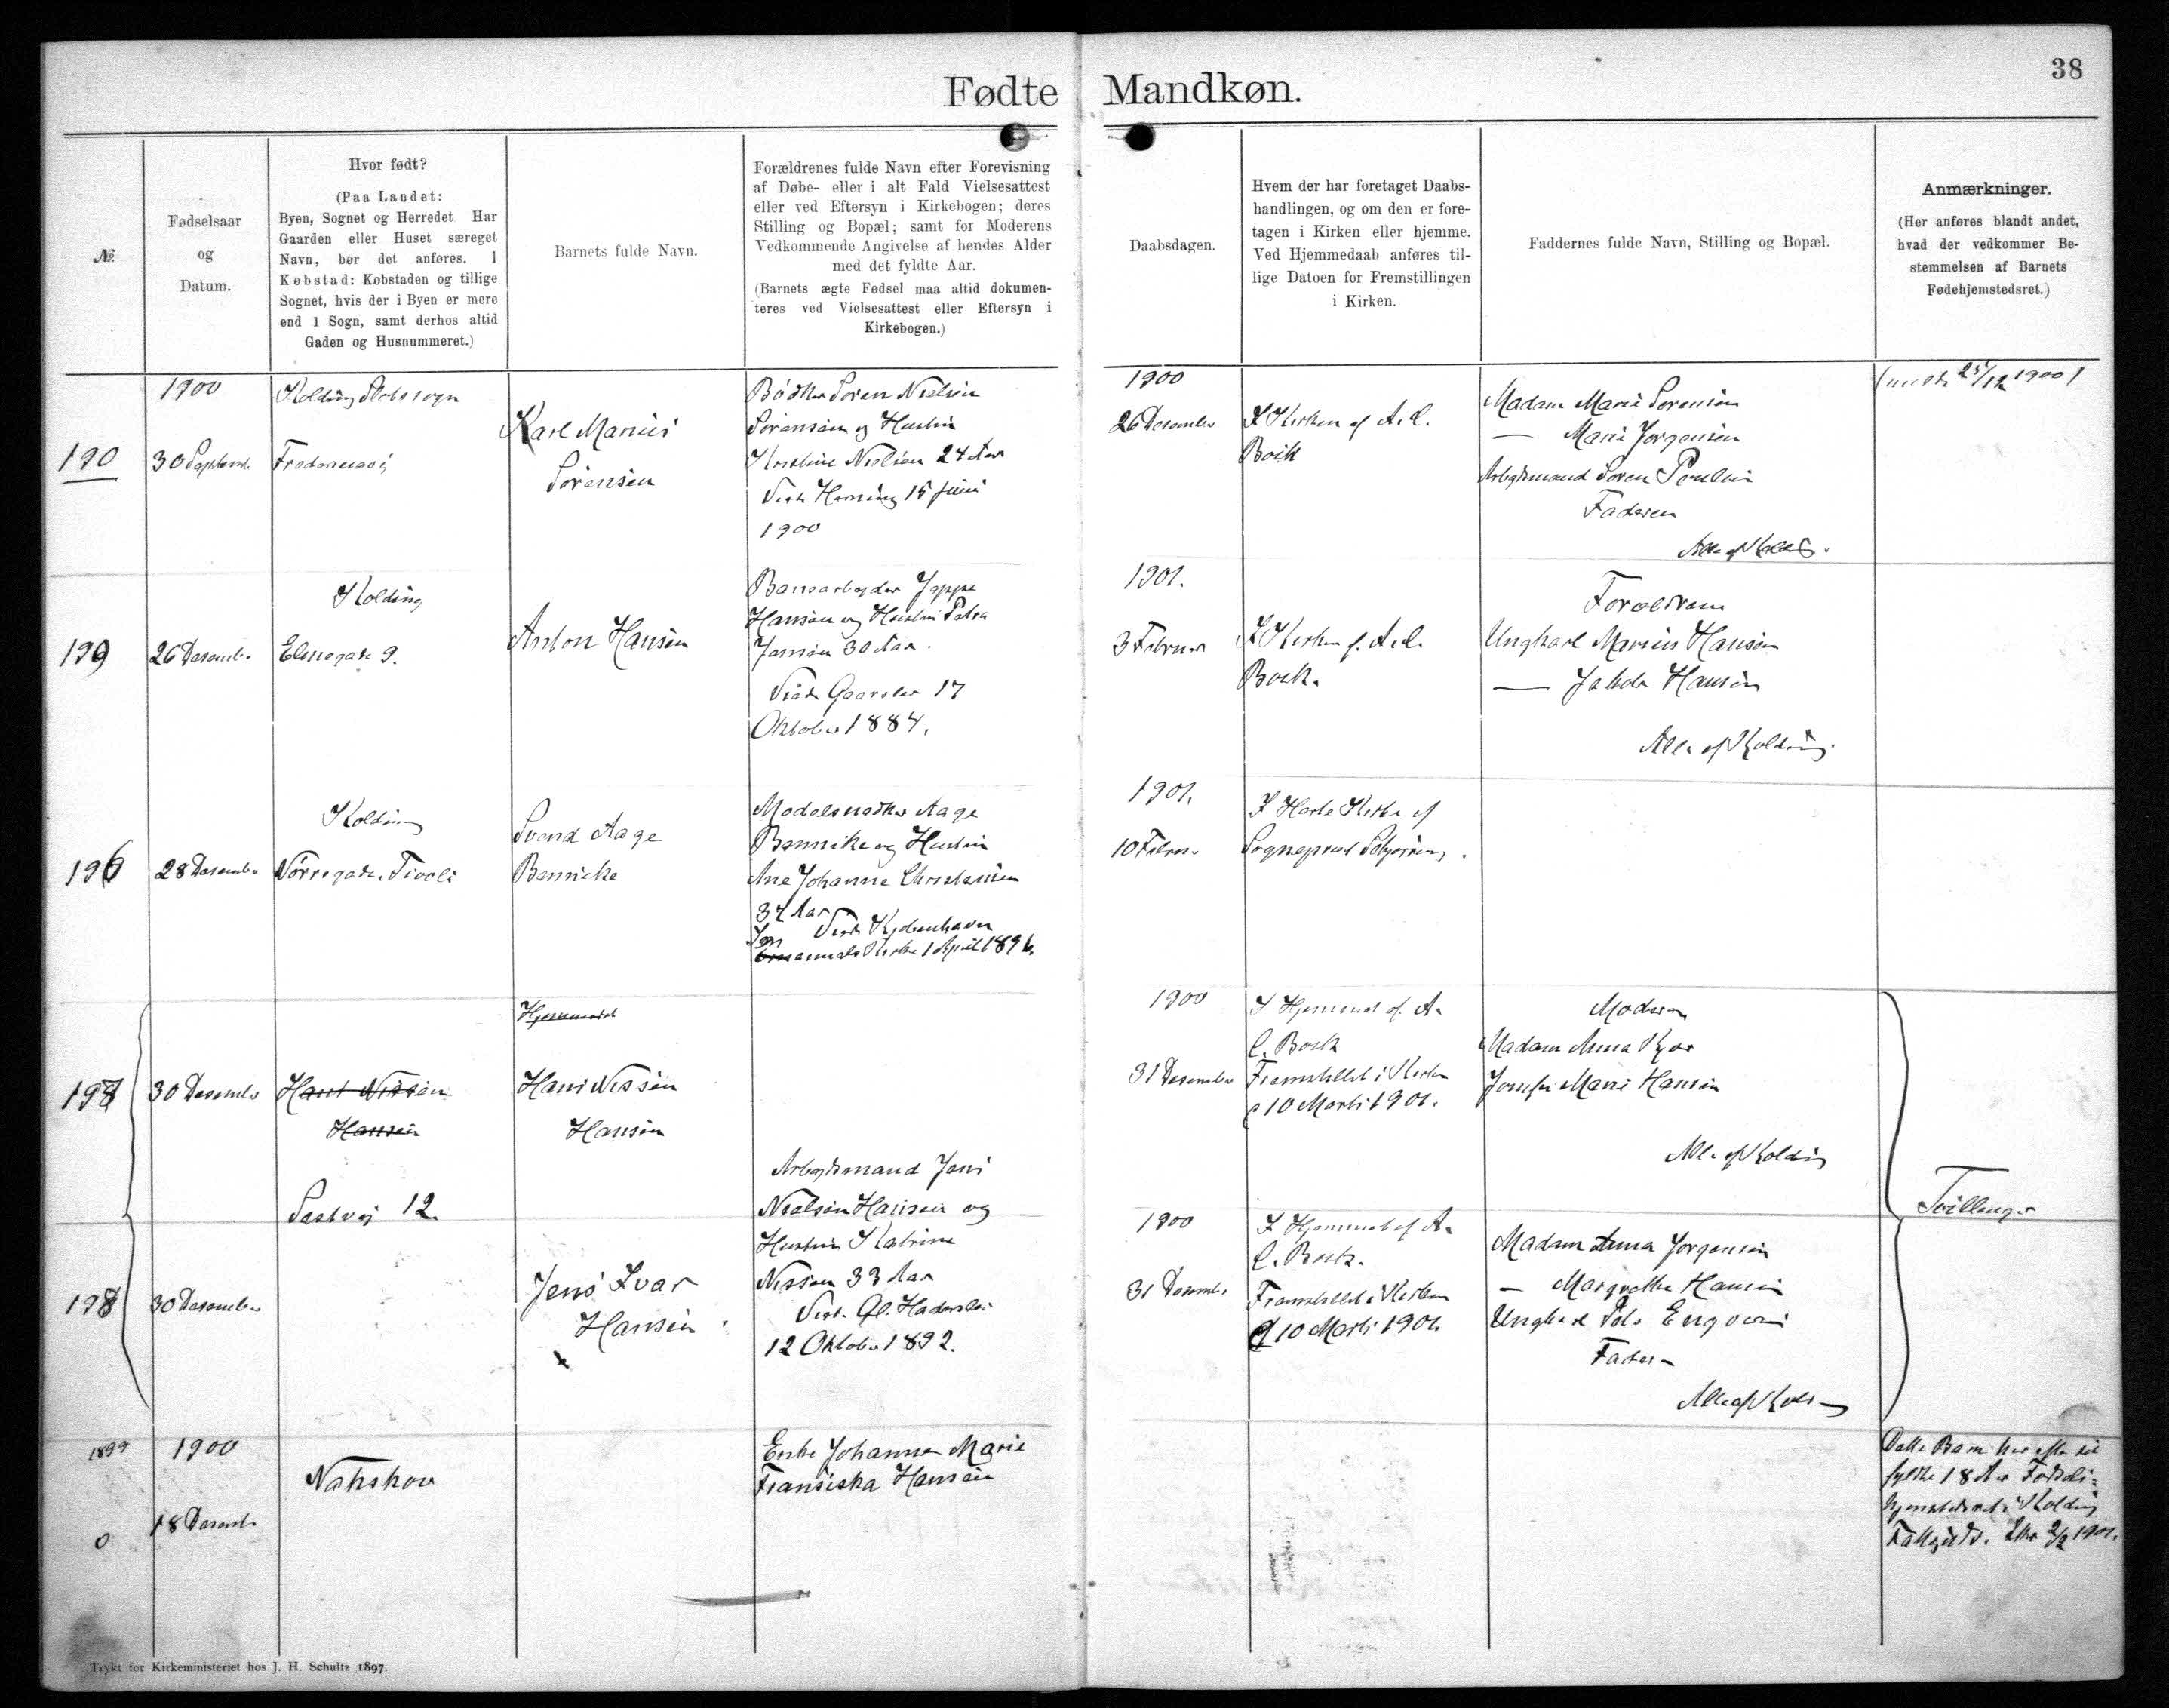 38
Fødte Mandkøn.
№
Fødselsaar
og
Datum.
Hvor født?
(Paa Landet:
Byen, Sognet og Herredet Har
Gaarden eller Huset særeget
Navn, bør det anføres. I
Købstad: Købstaden og tillige
Sognet, hvis der i Byen er mere
end 1 Sogn, samt derhos altid
Gaden og Husnummeret.)
Barnets fulde Navn.
Forældrenes fulde Navn efter Forevisning
af Døbe- eller i alt Fald Vielsesattest
eller ved Eftersyn i Kirkebogen; deres
Stilling og Bopæl; samt for Moderens
Vedkommende Angivelse af hendes Alder
med det fyldte Aar.
(Barnets ægte Fødsel maa altid dokumen-
teres ved Vielsesattest eller Eftersyn i
Kirkebogen.)
Daabsdagen.
Hvem der har foretaget Daabs-
handlingen, og om den er fore-
tagen i Kirken eller hjemme.
Ved Hjemmedaab anføres til-
lige Datoen for Fremstillingen
i Kirken.
Faddernes fulde Navn, Stilling og Bopæl.
Anmærkninger.
(Her anføres blandt andet,
hvad der vedkommer Be-
stemmelsen af Barnets
Fødehjemstedsret.)
190
1900
30 Septemb.
Kolding Slotssogn
Karl Marius
Sørensen
Bødker Søren Nielsen
Sørensen og Hustru
Kirstine Nielsen 24 Aar
Viet Herning 15 Juni
1900
1900
26 December
I Kirken af A. C.
Bock
Madam Marie Sørensen
— Marie Jørgensen
Arbejdsmand Søren Poulsen
Faderen
Alle af Kolding.
25/12 1900
26 December
Kolding
Elmegade 9.
Anton Hansen
Banearbejder Jeppe
Hansen og Hustru Petra
Jensen 30 Aar.
Viet Gaarslev 17
Oktober 1884.
1901.
3 Februar
I Kirken af A. C.
Bock.
Forældrene
Ungkarl Marius Hansen
— Hansen
Alle af Kolding.
196
28 December
Kolding
Nørregade, Tivoli
Svend Aage
Bennike
Modelsnedker Aage
Bennike og Hustru
Ane Johanne Christensen
34 Aar
Viet Kjøbenhavn
Kirke 1 April 1896.
1901.
10 Februar
I Harte Kirke af
Sognepræst
30 December
Hans Nissen
Hansen
Hjemmedøbt
Hans Nissen
Hansen
12
Arbejdsmand Jens
Nielsen Hansen og
Hustru Katrine
Nissen 33 Aar
Viet Gl. Haderslev
12 Oktober 1892.
1900
31 December
I Hjemmet af A.
C. Bock
Fremstillet i Kirken
d 10 Marts 1901.
Moderen
Madam Anna Kjær
Jomfru Marie Hansen
Alle af Kolding
Tvillinger
198
30 December
Jens Ivar
Hansen
1900
31 December
I Hjemmet af A.
C. Bock.
Fremstillet i Kirken
d 10 Marts 1901
Madam Anna Jørgensen
— Margrethe Hansen
Ungkarl
Faderen
Alle af Kolding
1899
0
1900
18 December
Nakskov
Enke Johanne Marie
Fransiska Hansen
Dette Barn har efter sit
fyldte 18 Aar Fødsels-
hjemstedsret i Kolding
1901.
Trykt for Kirkeministeriet hos J. H. Schultz 1897.